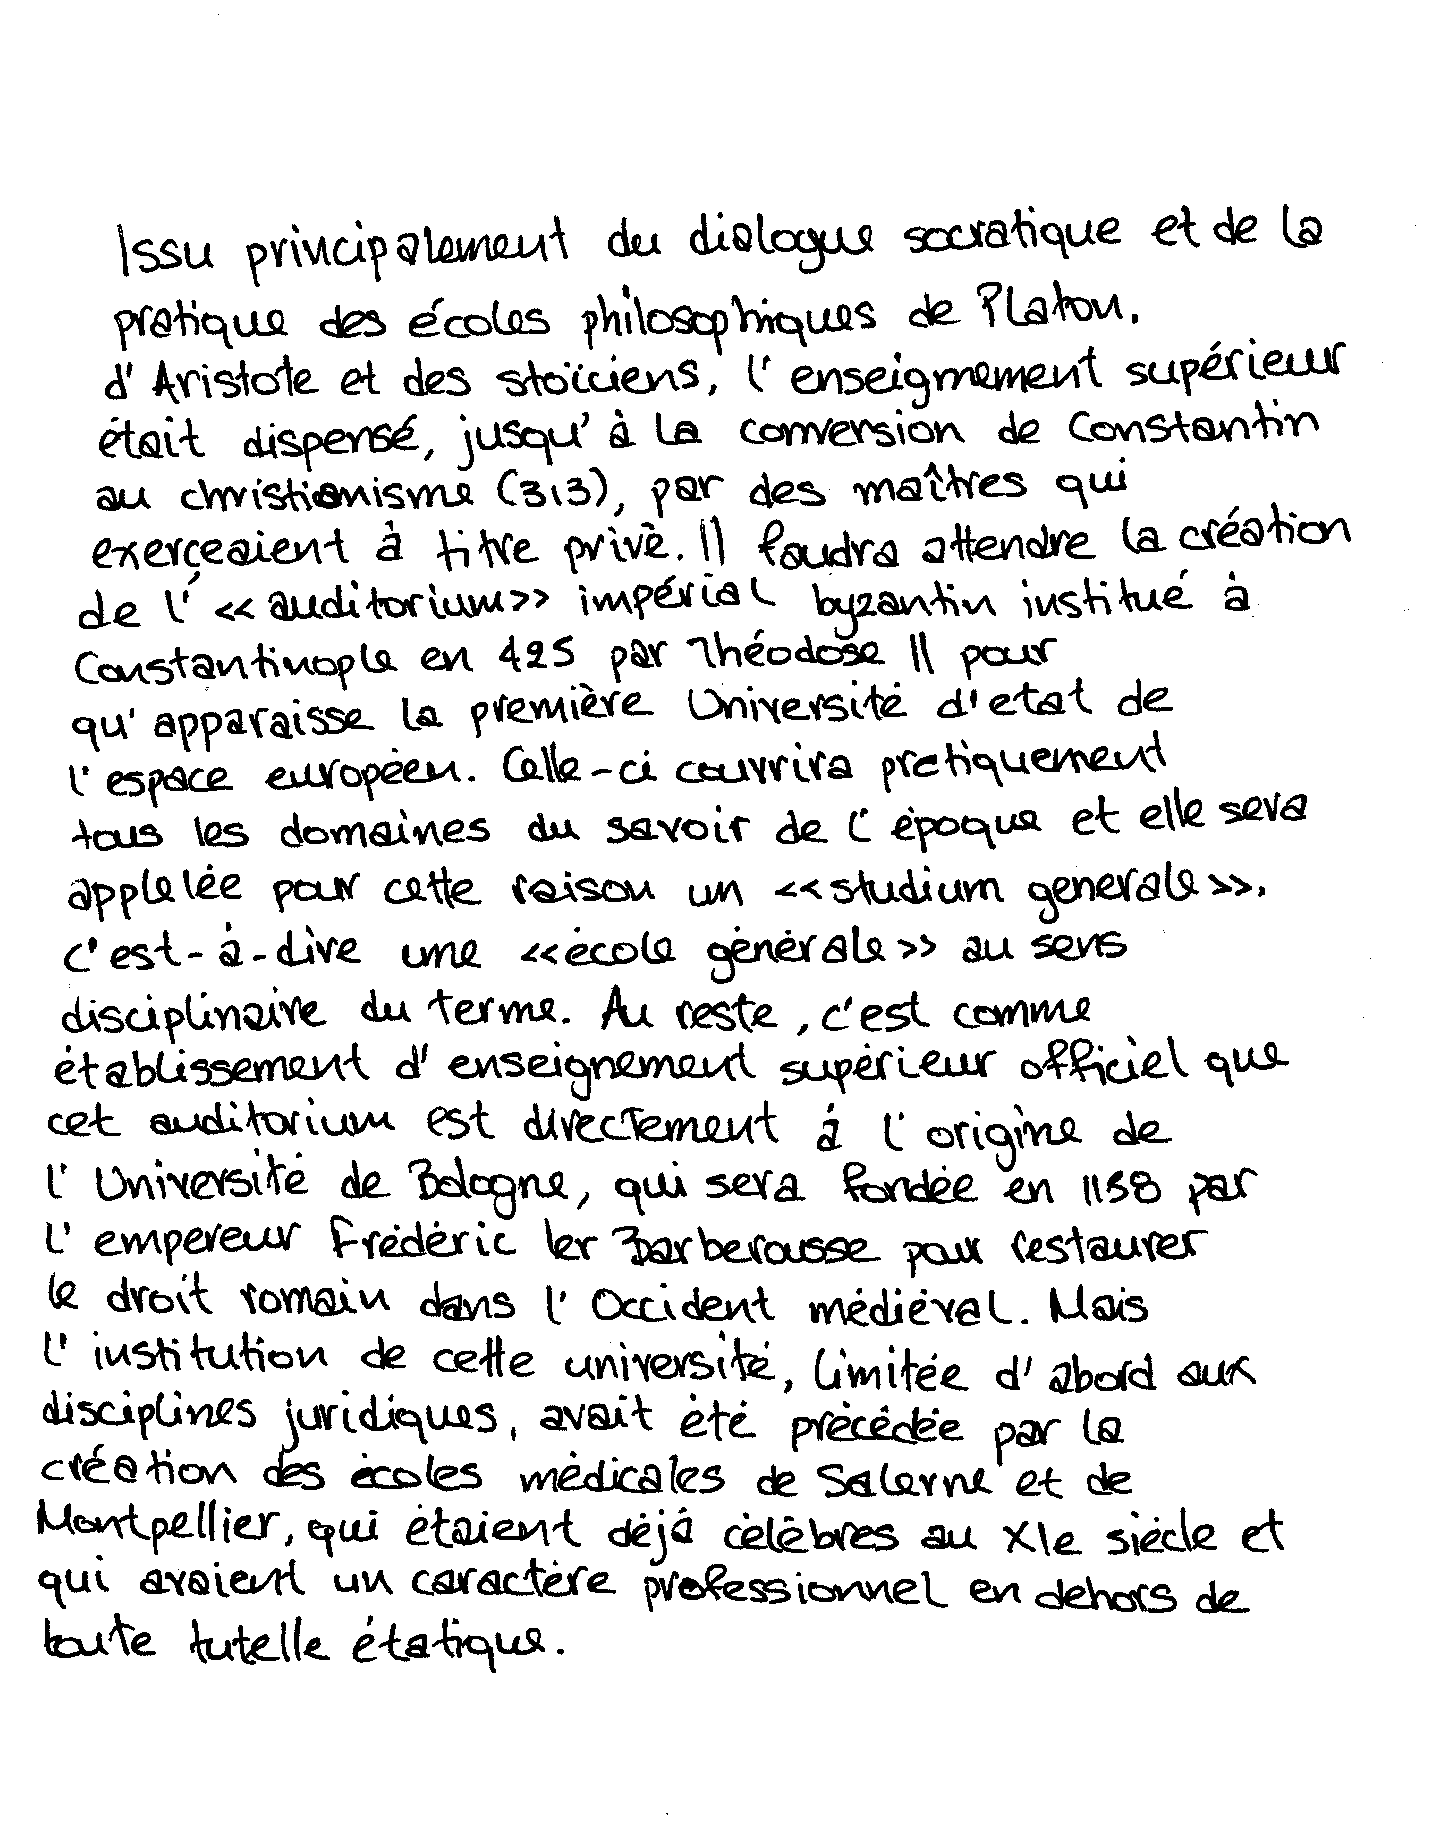 Issu principalement du dialogue socratique et de la
pratique des écoles philosophiques de Platon,
d'Aristote et des stoïciens, l'enseignement supérieur
était dispensé, jusqu'à la conversion de Constantin
au christianisme (313), par des maîtres qui
exerçeaient à titre privé. Il faudra attendre la création
de l'«auditorium» impérial byzantin institué à
Constantinople en 425 par Théodose II pour
qu'apparaisse la première Université d'etat de
l'espace européen. Celle-ci couvrira pratiquement
tous les domaines du savoir de l'époque et elle sera
applelée pour cette raison un «studium generale»,
c'est-à-dire une «école générale» au sens
disciplinaire du terme. Au reste, c'est comme
établissement d'enseignement supérieur officiel que
cet auditorium est directement à l'origine de
l'Université de Bologne, qui sera fondée en 1158 par
l'empereur Frédéric Ier Barberousse pour restaurer
le droit romain dans l'Occident médiéval. Mais
l'institution de cette université, limitée d'abord aux
disciplines juridiques, avait été précédée par la
création des écoles médicales de Salerne et de
Montpellier, qui étaient déjà célèbres au XIe siècle et
qui avaient un caractère professionnel en dehors de
toute tutelle étatique.